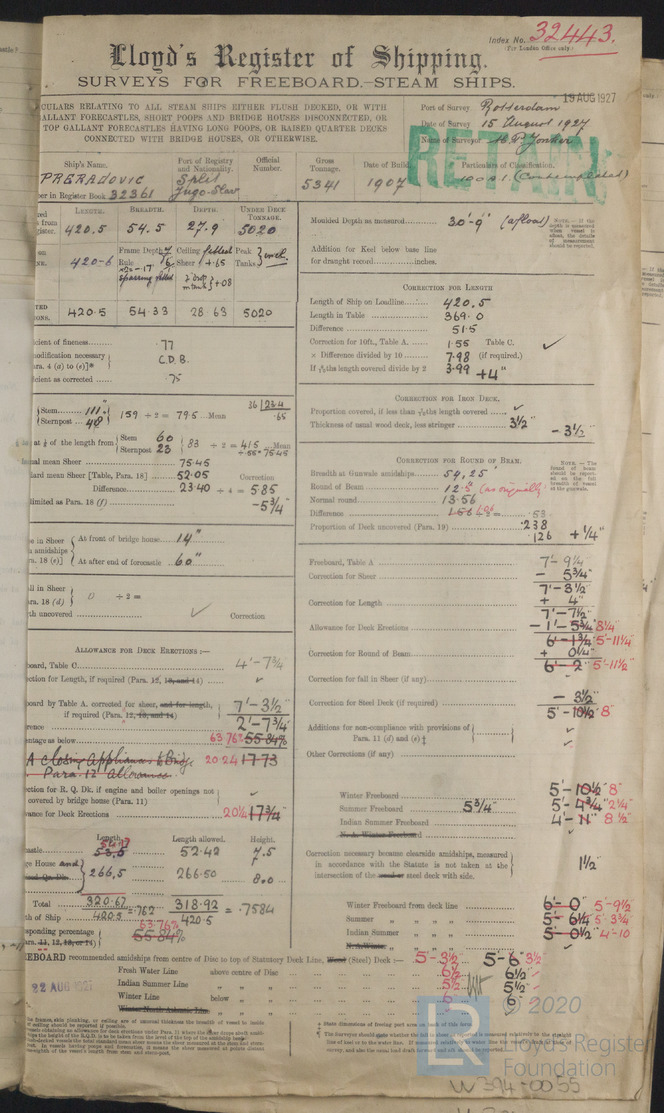 Index No. 32443.
(For London Office only)
Lloyd's Register of Shipping.
SURVEYS FOR FREEBOARD.—STEAM SHIPS.
19 AUG 1927
CULARS RELATING TO ALL STEAM SHIPS EITHER FLUSH DECKED, OR WITH
ALLANT FORECASTLES, SHORT POOPS AND BRIDGE HOUSES DISCONNECTED, OR
TOP GALLANT FORECASTLES HAVING LONG POOPS, OR RAISED QUARTER DECKS
CONNECTED WITH BRIDGE HOUSES, OR OTHERWISE.
Port of Survey Rotterdam
Date of Survey 15 August 1927
Name of Surveyor H. P. Jonker
RETAIN
Ship's Name. Port of Registry and Nationality. Official Number. Gross Tonnage. Date of Build. Particulars of Classification.
PRERADOVIC Split Jugo-Slav 5341 1907 100 A.1. (Contemplated)
ber in Register Book 32361
LENGTH. BREADTH. DEPTH. UNDER DECK TONNAGE.
420.5 54.5 27.9 5020
420-6 Frame Depth 7 Ceiling fitted Peak Tanks
Rule 6 Sheer +.65
sparring fitted +.08
420.5 54.33 28.63 5020
Moulded Depth as measured 30'-9" (afloat)
Addition for Keel below base line
for draught record inches.
CORRECTION FOR LENGTH
Length of Ship on Loadline 420.5
Length in Table 369.0
Difference 51.5
Correction for 10ft., Table A. 1.55 Table C. ✓
× Difference divided by 10 7.98 (if required.)
If 6/10ths length covered divide by 2 3.99 +4"
icient of fineness .77
modification necessary C.D.B.
ara. 4 (a) to (e)]*
icient as corrected .75
Stem 111" Sternpost 48" 159 ÷ 2 = 79.5 Mean
36 | 23.4 .65
at 1/8 of the length from Stem 60 Sternpost 23 83 ÷ 2 = 41.5 Mean
÷ .55 = 75.45
ual mean Sheer 75.45
ard mean Sheer [Table, Para. 18] 52.05 Correction
Difference 23.40 ÷ 4 = 5.85
limited as Para. 18 (f) -5¾"
CORRECTION FOR IRON DECK.
Proportion covered, if less than 7/10ths length covered ✓
Thickness of usual wood deck, less stringer 3½" - 3½
CORRECTION FOR ROUND OF BEAM.
Breadth at Gunwale amidships 54.25'
Round of Beam 12.5" (as originally)
Normal round 13.56
Difference .53
Proportion of Deck uncovered (Para. 19) .238
.126 + ¼"
se in Sheer At front of bridge house 14"
amidships
ra. 18 (e)] At after end of forecastle 60"
all in Sheer
ara. 18 (d) ÷ 2 =
th uncovered ✓ Correction
Freeboard, Table A 7'-9¼
Correction for Sheer - 5¾"
7'-3½"
Correction for Length + 4"
7'-7½"
Allowance for Deck Erections -1'-5¾" 8¼"
6'-1¾ 5'-11¼"
Correction for Round of Beam + 0¼"
6'-2" 5'-11½"
Correction for fall in Sheer (if any) ✓
Correction for Steel Deck (if required) - 3½"
5'-10½" 8"
Additions for non-compliance with provisions of
Para. 11 (d) and (e) ‡
Other Corrections (if any)
Winter Freeboard 5'-10½" 8"
Summer Freeboard 5¾" 5'-4¾" 2¼"
Indian Summer Freeboard 4'-11" 8½"
N. A. Winter Freeboard ✓
ALLOWANCE FOR DECK ERECTIONS :—
board, Table C 4'-7¾
ection for Length, if required (Para. 12, 13, and 14) ✓
board by Table A. corrected for sheer, and for length,
if required (Para. 12, 13, and 14) 7'-3½"
rence 2'-7¾"
entage as below 63.76% 55.84%
A closing Appliances to Bridge 20.24 17.73
Para. 12 Allowance
ection for R. Q. Dk. if engine and boiler openings not
covered by bridge house (Para. 11) ✓
ance for Deck Erections 20¼" 17¾"
Length. Length allowed. Height.
castle 53.5 54.17 52.42 7.5
ge House and 266.5 266.50 8.0
Total 320.67 318.92 = .7584
th of Ship 420.5 = .762 420.5
sponding percentage 63.76%
ara. 11, 12, 13, or 14) 55.84%
Correction necessary because clearside amidships, measured
in accordance with the Statute is not taken at the
intersection of the wood or steel deck with side. 1½"
Winter Freeboard from deck line 6'-0" 5'-9½"
Summer „ „ „ „ 5'-6¼" 5'-3¾"
Indian Summer „ „ „ „ 5'-0½" 4'-10
N. A. Winter „ „ „ „ ✓
EEBOARD recommended amidships from centre of Disc to top of Statutory Deck Line, Wood (Steel) Deck :— 5'-3½" 5'-6" 3½"
Fresh Water Line above centre of Disc 6½" 6½"
Indian Summer Line „ „ 5½" 5½"
Winter Line below „ 6" 6"
Winter North Atlantic Line
22 AUG 1927
© 2020
LR Lloyd's Register
Foundation
W394-0055